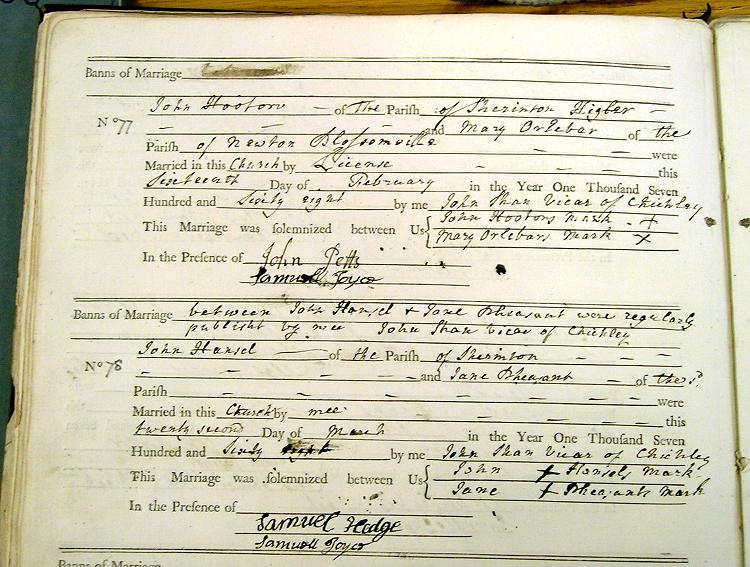 Banns of Marriage
John Hootons — of the Parish of Sherinton Higler —
No 77 — — — — and Mary Orlebar of the
Parish of Newton Blossomville — — — were
Married in this Church by License — — — this
Sixteenth Day of February in the Year One Thousand Seven
Hundred and Sixty eight by me John Shan Vicar of Chichley
This Marriage was solemnized between Us { John Hootons Mark +
Mary Orlebars Mark X
In the Presence of John Petts
Samuell Joyce
Banns of Marriage between John Hansel & Jane Pheasant were regularly
publisht by mee John Shan Vicar of Chichley
John Hansel — of the Parish of Sherinton — — —
No 78 — — — — — and Jane Pheasant — of the sd.
Parish — — — — — — were
Married in this Church by mee — — — — this
twenty second Day of March in the Year One Thousand Seven
Hundred and Sixty eight by me John Shan Vicar of Chichley
This Marriage was solemnized between Us { John + Hansels Mark
Jane + Pheasants Mark
In the Presence of
Samuel Hodge
Samuell Joyce
Banns of Marriage